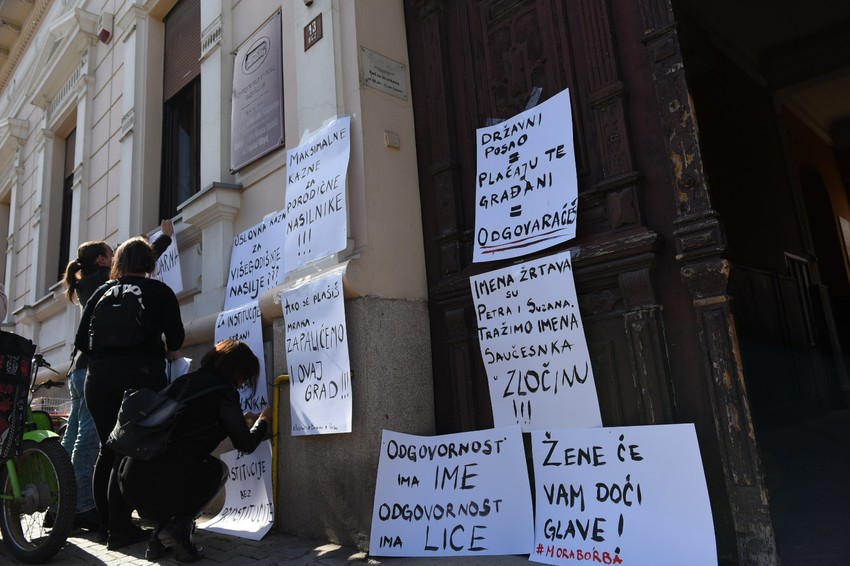 13
LARNA
MAKSIMALNE
KAZNE
ZA
PORODIČNE
NASILNIKE
!!!
USLOVNA KAZNA
ZA
VIŠEGODIŠNJE
NASILJE???
ZA INSTITUCIJE
AKO SE PLAŠIŠ
MRAKA,
ZAPALIĆEMO
I OVAJ
GRAD!!!
ZA
INSTITUCIJE
BEZ
DRŽAVNI
POSAO
=
PLAĆAJU TE
GRAĐANI
=
ODGOVARAĆEŠ
IMENA ŽRTAVA
SU
PETRA I SUZANA.
TRAŽIMO IMENA
SAUČESNIKA
U
ZLOČINU
!!!
ODGOVORNOST
IMA IME
ODGOVORNOST
IMA LICE
ŽENE ĆE
VAM DOĆI
GLAVE!
#MORABORBA